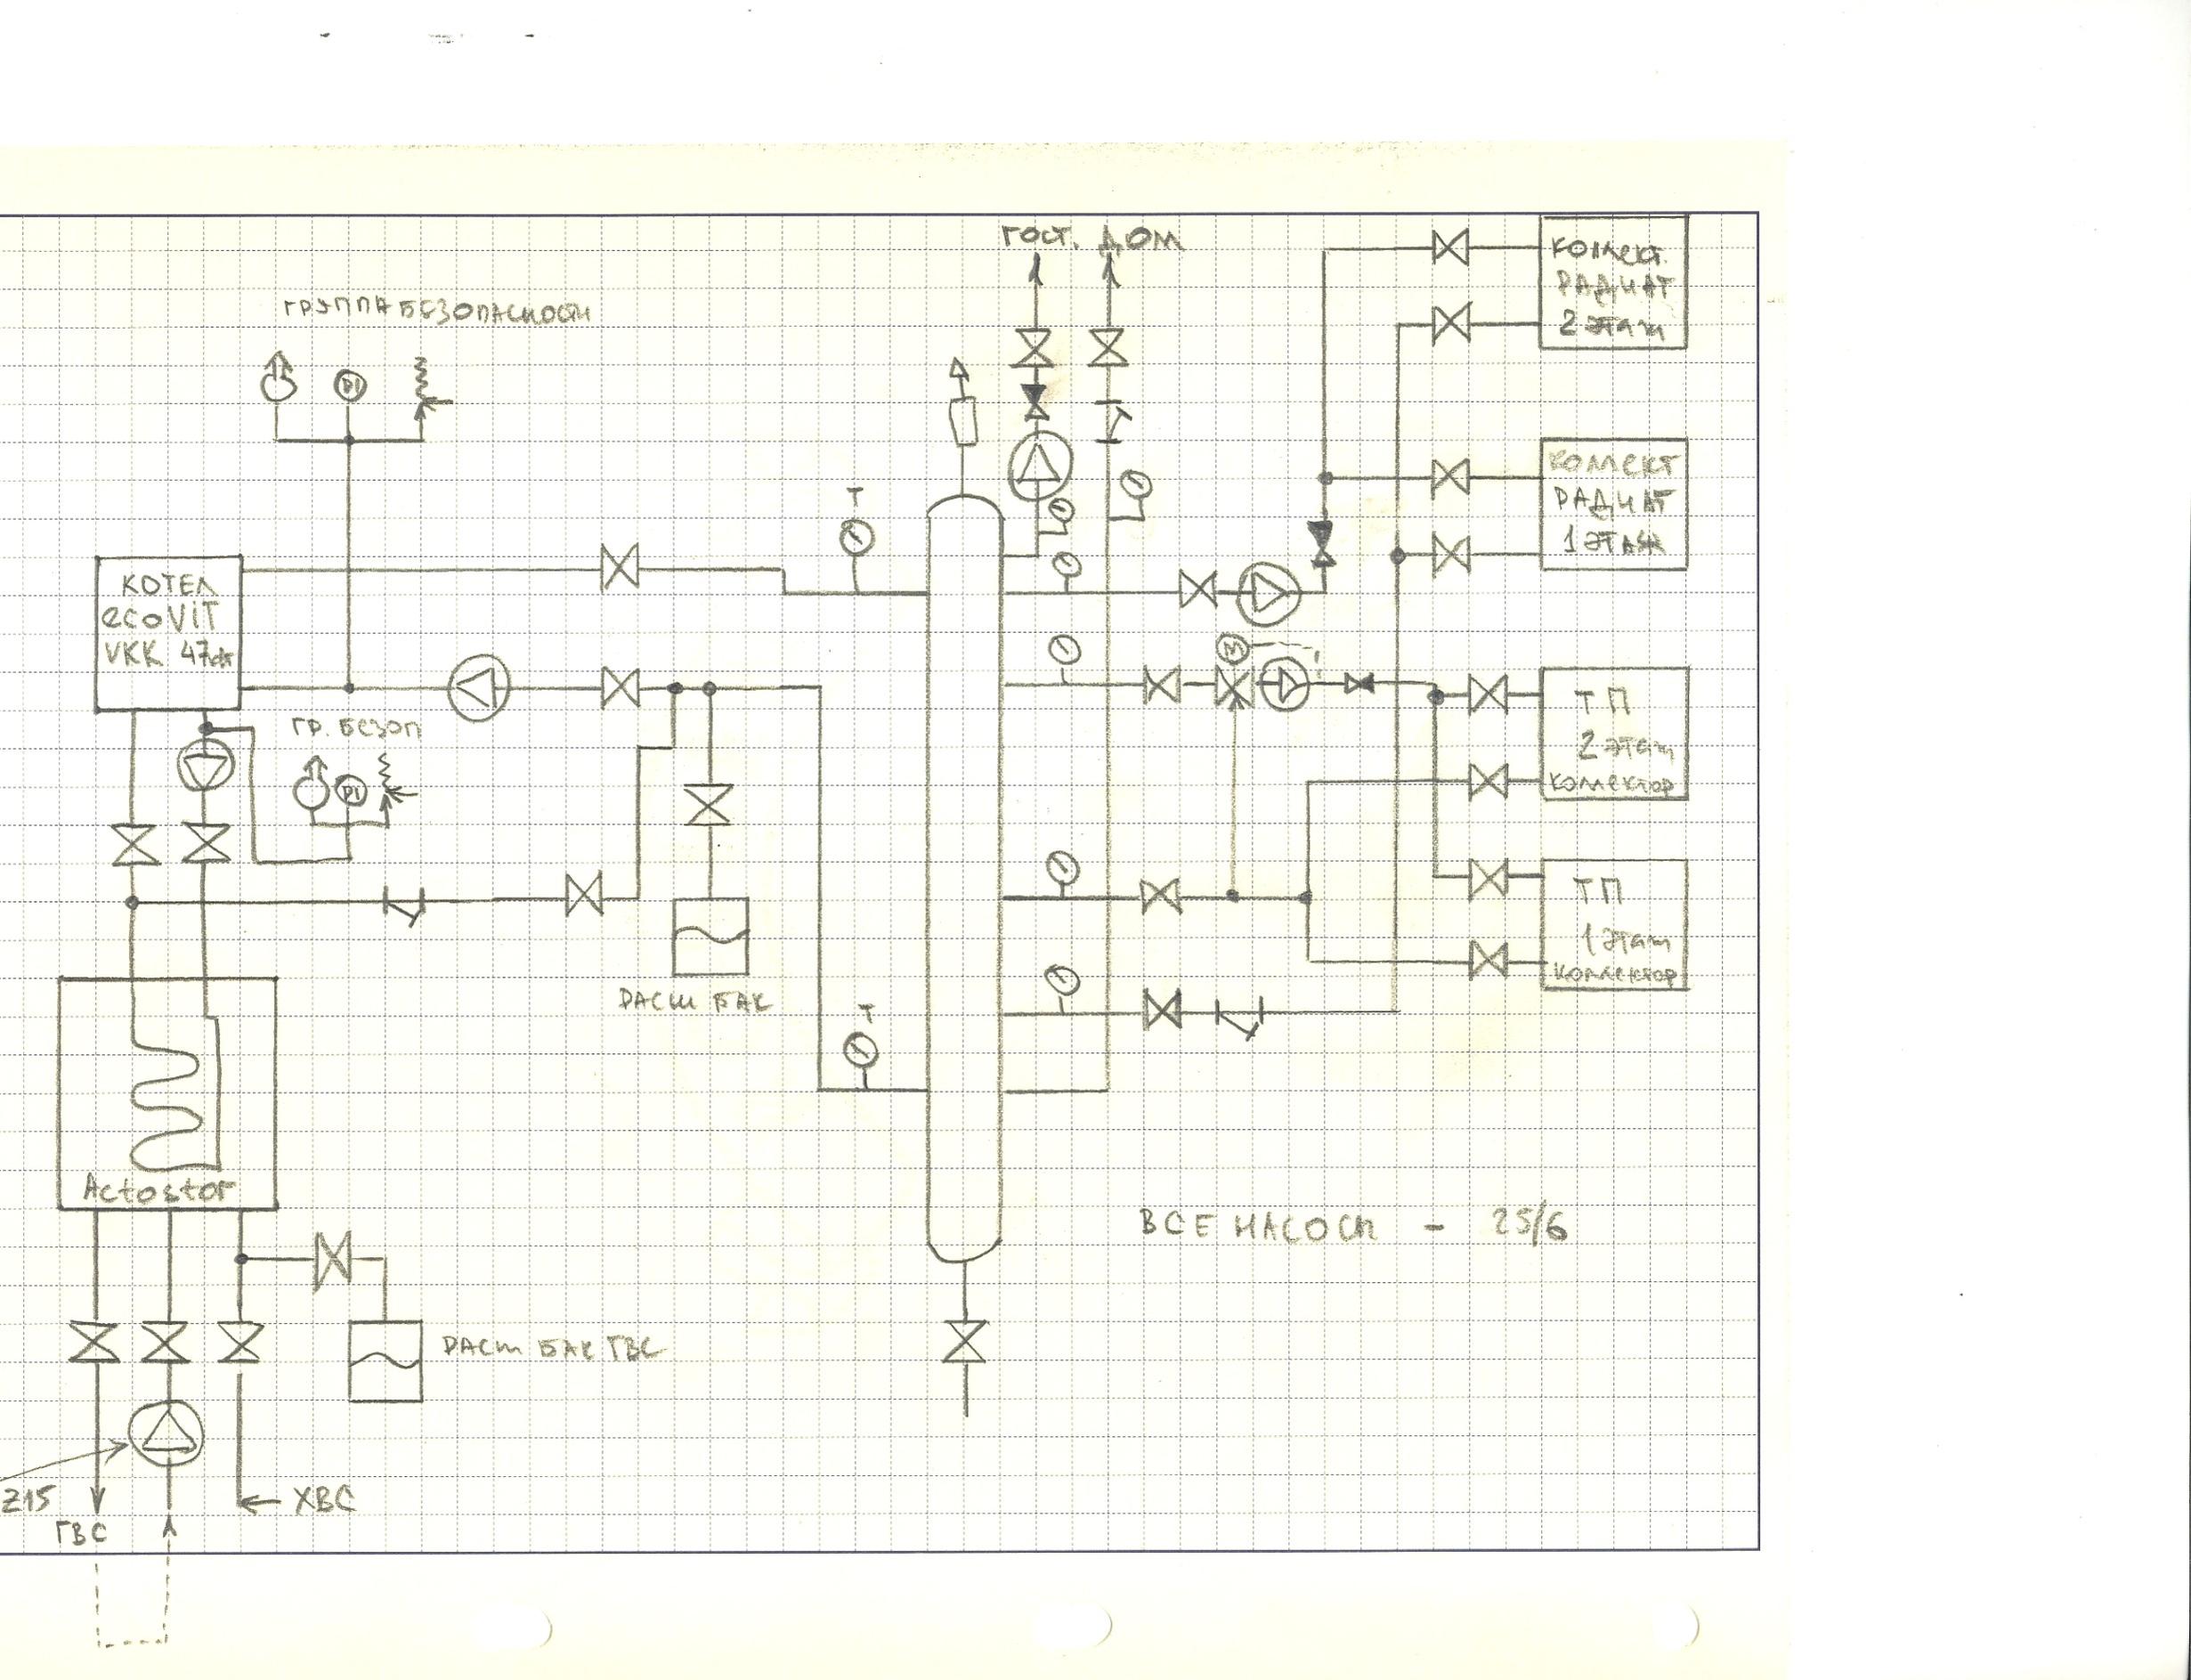 ГОСТ. ДОМ
ГРУППА БЕЗОПАСНОСТИ
КОЛЛЕКТ.
РАДИАТ
2 ЭТАЖ
КОЛЛЕКТ
РАДИАТ
1 ЭТАЖ
T
КОТЕЛ
ecoVIT
VKK 47
PI
ГР. БЕЗОП
PI
М
ТП
2 ЭТАЖ
КОЛЛЕКТОР
ТП
1 ЭТАЖ
КОЛЛЕКТОР
РАСШ БАК
T
Actostor
ВСЕ НАСОСЫ - 25/6
РАСШ БАК ГВС
Z15
ГВС
ХВС